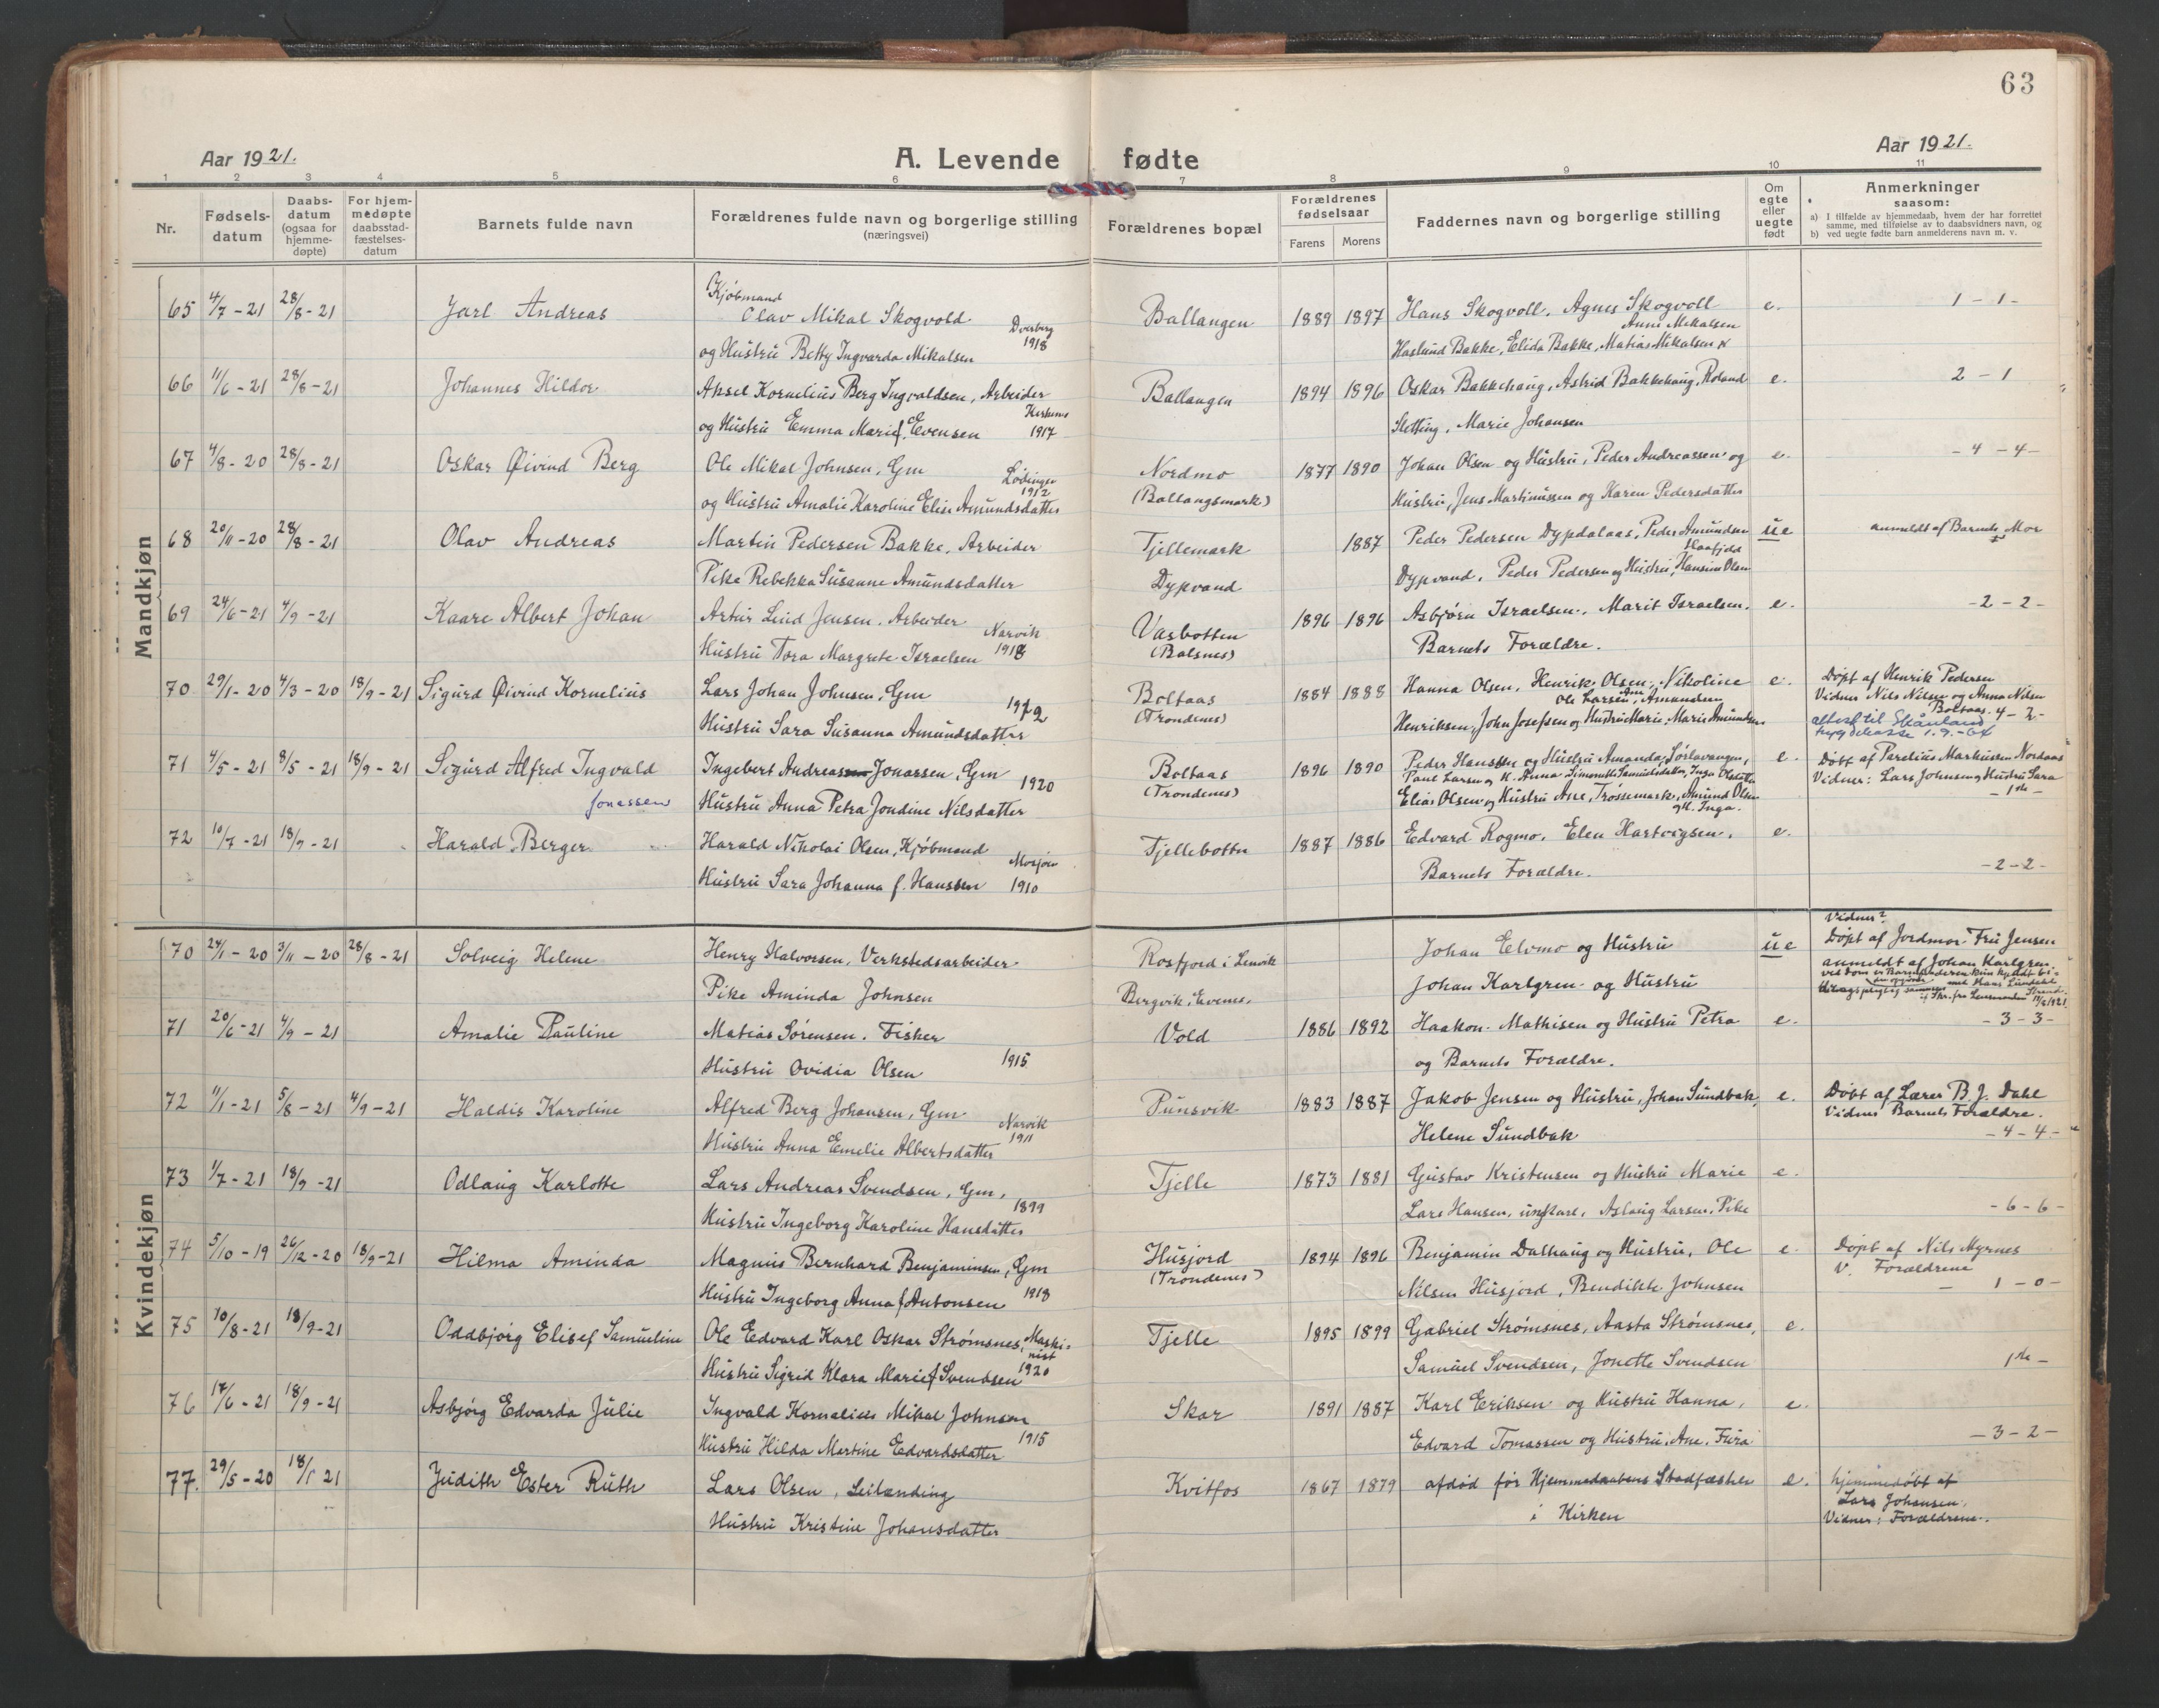 63
Aar 1921.
A. Levende fødte
Aar 1921.
1 2 3 4 5 6 7 8 9 10 11
Nr.
Fødsels-
datum
Daabs-
datum
(ogsaa for
hjemme-
døpte)
For hjem-
medøpte
daabsstad-
fæstelses-
datum
Barnets fulde navn
Forældrenes fulde navn og borgerlige stilling
(næringsvei)
Forældrenes bopæl
Forældrenes
fødselsaar
Farens Morens
Faddernes navn og borgerlige stilling
Om
egte
eller
uegte
født
Anmerkninger
saasom:
a) I tilfælde av hjemmedaab, hvem der har forrettet
samme, med tilføielse av to daabsvidners navn, og
b) ved uegte fødte barn anmelderens navn m. v.
Mandkjøn
65 4/7-21 28/8-21 Jarl Andreas Kjøbmand
Olav Mikal Skogvold Dverberg 1918 Ballangen 1889 1897 Hans Skogvoll, Agnes Skogvoll e. 1-1-
Anni Mikalsen
og Hustru Betty Ingvarda Mikalsen Haslund Bakke, Elida Bakke, Matias Mikalsen
66 11/6-21 28/8-21 Johannes Hildor Aksel Kornelius Berg Ingvaldsen, Arbeider Ballangen 1894 1896 Oskar Bakkehaug, Astrid Bakkehaug, Roland e. 2-1
og Hustru Emma Marie f. Evensen 1917 Sletting, Marie Johansen
67 4/8-20 28/8-21 Oskar Øivind Berg Ole Mikal Johnsen, Gm Lødingen 1912 Nordmo 1877 1890 Johan Olsen og Hustru, Peder Andreassen og e. -4-4-
og Hustru Amalie Karoline Elise Amundsdatter (Ballangsmark) Hustru, Jens Martinussen og Karen Pedersdatter
68 20/11-20 28/8-21 Olav Andreas Martin Pedersen Bakke, Arbeider Tjellemark 1887 Peder Pedersen Dypdalaas, Peder Amundsen ue anmeldt af Barnets Mor
Pike Rebekka Susanne Amundsdatter Dypvand Dypvand, Peder Pedersen og Hustru, Hansine Olsen
69 24/6-21 4/9-21 Kaare Albert Johan Artur Lind Jensen, Arbeider Narvik 1918 Vasbotten 1896 1896 Asbjørn Israelsen, Marit Israelsen, e. -2-2-
Hustru Tora Margrete Israelsen (Balsnes) Barnets Forældre.
70 29/1-20 4/3-20 18/9-21 Sigurd Øivind Kornelius Lars Johan Johnsen, Gm 1912 Boltaas 1884 1888 Hanna Olsen, Henrik Olsen, Nikoline e. Døpt af Henrik Pedersen
Ole Larsen, Amundsen Vidner Nils Nilsen og Anna Nilsen
Hustru Sara Susanna Amundsdatter (Trondenes) Henriksen, John Josefsen og Hustru Marie, Marie Amundsen Boltaas. 4-2-
attest til Skånland
trygdekasse 1.9.-64
71 4/5-21 8/5-21 18/9-21 Sigurd Alfred Ingvald Ingebert Andreas Jonassen, Gm 1920 Boltaas 1896 1890 Peder Hanssen og Hustru Amanda, Sørlavangen, e. Døbt af Parelius Markussen Nordaas
Paul Larsen og H. Anna Simonette Samuelsdatter, Inga Olsdatter Vidner: Lars Johnsen og Hustru Sara
Jonassen Hustru Anna Petra Jondine Nilsdatter (Trondenes) Elias Olsen og Hustru Ane, Trøssemark, Amund Olsen -1ste-
og H. Inga.
72 10/7-21 18/9-21 Harald Berger Harald Nikolai Olsen, Kjøbmand Mosjøen 1910 Tjellebotn 1887 1886 Edvard Rogmo, Elen Hartvigsen, e. -2-2-
Hustru Sara Johanna f. Hanssen Barnets Forældre.
Kvindekjøn
70 24/1-20 3/11-20 28/8-21 Solveig Helene Henry Halvorsen, Verkstedsarbeider Rosfjord i Lenvik Johan Elvmo og Hustru ue Vidner?
Døpt af Jordmor Fru Jensen
anmeldt af Johan Karlgren.
Pike Aminda Johnsen Bergvik, Evenes. Johan Karlgren og Hustru
71 20/6-21 4/9-21 Amalie Pauline Matias Sørensen, Fisker Vold 1886 1892 Haakon Mathisen og Hustru Petra e. -3-3-
Hustru Ovidia Olsen 1915 og Barnets Forældre.
72 11/1-21 5/8-21 4/9-21 Haldis Karoline Alfred Berg Johansen, Gm Narvik 1911 Punsvik 1883 1887 Jakob Jensen og Hustru, Johan Sundbak, e. Døbt af Lærer B. J. Dahl
Vidner Barnets Forældre.
Hustru Anna Emelie Albertsdatter Helene Sundbak -4-4-
73 1/7-21 18/9-21 Odlaug Karlotte Lars Andreas Svendsen, Gm, 1899 Tjelle 1873 1881 Gustav Kristensen og Hustru Marie e.
Hustru Ingeborg Karoline Hansdatter Lars Hansen, ungkarl, Aslaug Larsen, Pike -6-6-
74 5/10-19 26/12-20 18/9-21 Hilma Aminda Magnus Bernhard Benjaminsen, Gm Husjord 1894 1896 Benjamin Dalhaug og Hustru, Ole e. Døpt af Nils Myrnes
V. Forældrene
Hustru Ingeborg Anna f Antonsen 1918 (Trondenes) Nilsen Husjord, Bendikte Johnsen - 1-0-
75 10/8-21 18/9-21 Oddbjørg Elisef Samueline Ole Edvard Karl Oskar Strømsnes, Maski-
nist Tjelle 1895 1899 Gabriel Strømsnes, Aasta Strømsnes, e.
Hustru Sigrid Klara Marie f Svendsen 1920 Samuel Svendsen, Jonette Svendsen 1ste-
76 17/6-21 18/9-21 Asbjørg Edvarda Julie Ingvald Kornelius Mikal Johnsen Skar 1891 1887 Karl Eriksen og Hustru Hanna, e.
Hustru Hilda Martine Edvardsdatter 1915 Edvard Tomassen og Hustru, Ane, Fura -3-2-
77. 29/5-20 18/1 21 Judith Ester Ruth Lars Olsen, Leilænding Kvitfos 1867 1879 afdød før Hjemmedaabens Stadfæstelse e. hjemmedøbt af
Hustru Kristine Johansdatter i Kirken Lars Johansen,
Vidner: Forældrene.